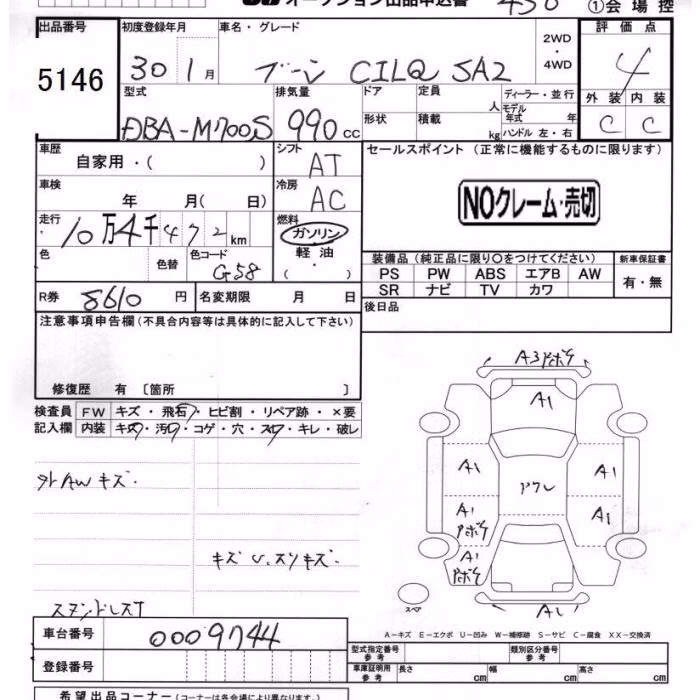 オークション出品申込書 450 ①会場控
出品番号 初度登録年月 車名・グレード 2WD・4WD 評価点
5146 30 1月 ブーン CILQ SA2 4
型式 排気量 ドア 定員 人 ディーラー・並行 外装 内装
DBA-M700S 990cc 形状 積載 kg モデル年式 年 ハンドル 左・右 C C
車歴 自家用・( ) シフト AT セールスポイント (正常に機能するものに限ります)
車検 年 月( 日) 冷房 AC
NOクレーム・売切
走行 10万4千472km 燃料 ガソリン 軽油 ( ・ )
色 色替 色コード G58 装備品 (純正品に限り○をつけてください) 新車保証書
PS PW ABS エアB AW 有・無
SR ナビ TV カワ
R券 8610円 名変期限 月 日 後日品
注意事項申告欄(不具合内容等は具体的に記入して下さい)
修復歴 有 〔箇所 〕
検査員 FW キズ・飛石・ヒビ割・リペア跡・×要
記入欄 内装 キズ・汚レ・コゲ・穴・スレ・キレ・破レ
外AWキズ.
キズ U.スリキズ.
A1
A1 A1
A1 A1
A1
スペア
A1
A-キズ E-エクボ U-凹み W-補修跡 S-サビ C-腐食 XX-交換済
車台番号 0009744 型式指定番号 参考 類別区分番号 参考
登録番号 車庫証明用 参考 長さ cm 幅 cm 高さ cm
希望出品コーナー(コーナーは各会場により異なります。)